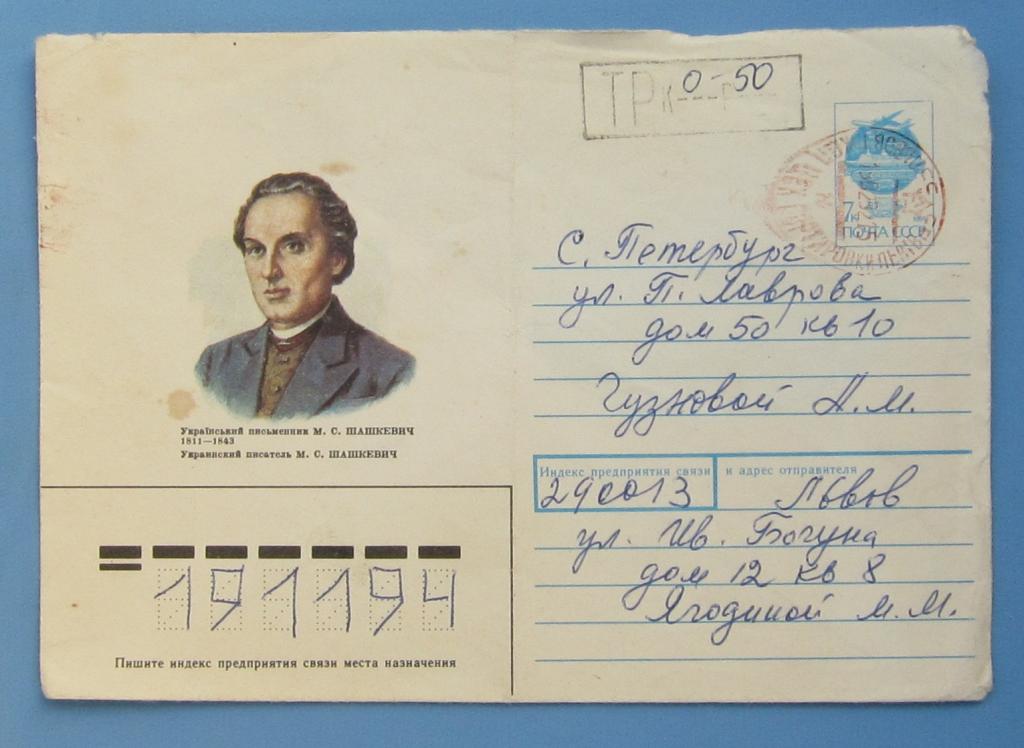 ТР к 0-50 г
7к
ПОЧТА СССР
С. Петербург
ул. П. Лаврова
дом 50 кв 10
Гузновой А.М.
Український письменник М. С. ШАШКЕВИЧ
1811—1843
Украинский писатель М. С. ШАШКЕВИЧ
Индекс предприятия связи и адрес отправителя
290013 Львов
ул. Ив. Богуна
дом 12 кв 8
Ягодиной М.М.
191194
Пишите индекс предприятия связи места назначения